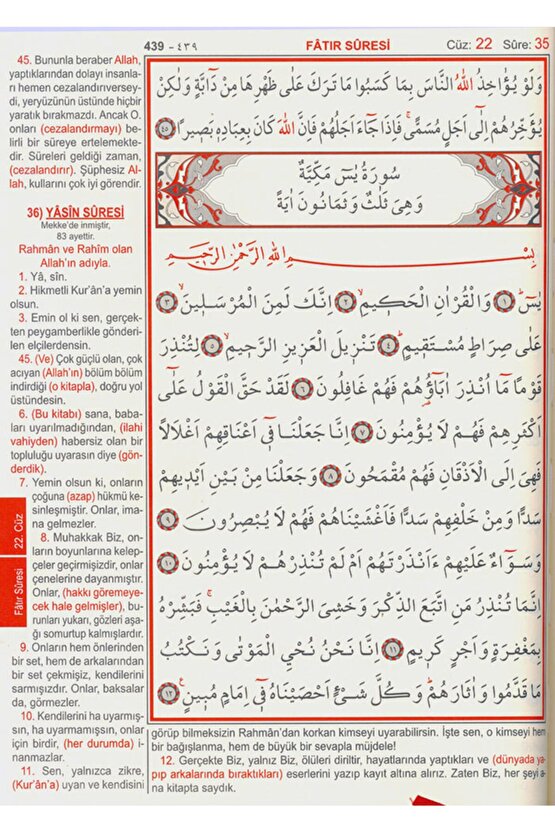 439 - ٤٣٩
FÂTIR SÛRESİ
Cüz: 22 Sûre: 35
45. Bununla beraber Allah,
yaptıklarından dolayı insanla-
rı hemen cezalandırıversey-
di, yeryüzünün üstünde hiçbir
yaratık bırakmazdı. Ancak O.
onları (cezalandırmayı) be-
lirli bir süreye ertelemekte-
dir. Süreleri geldiği zaman,
(cezalandırır). Şüphesiz Al-
lah, kullarını çok iyi görendir.
36) YÂSİN SÛRESİ
Mekke'de inmiştir,
83 ayettir.
Rahmân ve Rahîm olan
Allah'ın adıyla.
1. Yâ, sîn.
2. Hikmetli Kur'ân'a yemin
olsun.
3. Emin ol ki sen, gerçek-
ten peygamberlikle gönderi-
len elçilerdensin.
45. (Ve) Çok güçlü olan, çok
acıyan (Allah'ın) bölüm bölüm
indirdiği (o kitapla), doğru yol
üstündesin.
6. (Bu kitabı) sana, baba-
ları uyarılmadığından, (ilahi
vahiyden) habersiz olan bir
topluluğu uyarasın diye (gön-
derdik).
7. Yemin olsun ki, onların
çoğuna (azap) hükmü ke-
sinleşmiştir. Onlar, ima-
na gelmezler.
8. Muhakkak Biz, on-
ların boyunlarına kelep-
çeler geçirmişizdir, onlar
çenelerine dayanmıştır.
Onlar, (hakkı göremeye-
cek hale gelmişler), bu-
runları yukarı, gözleri aşa-
ğı somurtup kalmışlardır.
9. Onların hem önlerinden
bir set, hem de arkalarından
bir set çekmişiz, kendilerini
sarmışızdır. Onlar, baksalar
da, görmezler.
10. Kendilerini ha uyarmış-
sın, ha uyarmamışsın, onlar
için birdir, (her durumda) i-
nanmazlar.
11. Sen, yalnızca zikre,
(Kur'ân'a) uyan ve kendisini
22. Cüz
Fâtır Sûresi
وَلَوْ يُؤَاخِذُ اللّٰهُ النَّاسَ بِمَا كَسَبُوا مَا تَرَكَ عَلٰى ظَهْرِهَا مِنْ دَٓابَّةٍ وَلٰكِنْ
يُؤَخِّرُهُمْ اِلٰٓى اَجَلٍ مُسَمًّىۚ فَاِذَا جَٓاءَ اَجَلُهُمْ فَاِنَّ اللّٰهَ كَانَ بِعِبَادِهٖ بَصٖيرًا ﴿٤٥﴾
سُورَةُ يٰسٓ مَكِّيَّةٌ
وَهِىَ ثَلٰثٌ وَثَمَانُونَ اٰيَةً
بِسْمِ اللّٰهِ الرَّحْمٰنِ الرَّحٖيمِ
يٰسٓ ﴿١﴾ وَالْقُرْاٰنِ الْحَكٖيمِ ﴿٢﴾ اِنَّكَ لَمِنَ الْمُرْسَلٖينَ ﴿٣﴾
عَلٰى صِرَاطٍ مُسْتَقٖيمٍ ﴿٤﴾ تَنْزٖيلَ الْعَزٖيزِ الرَّحٖيمِ ﴿٥﴾ لِتُنْذِرَ
قَوْمًا مَٓا اُنْذِرَ اٰبَٓاؤُهُمْ فَهُمْ غَافِلُونَ ﴿٦﴾ لَقَدْ حَقَّ الْقَوْلُ عَلٰٓى
اَكْثَرِهِمْ فَهُمْ لَا يُؤْمِنُونَ ﴿٧﴾ اِنَّا جَعَلْنَا فٖٓى اَعْنَاقِهِمْ اَغْلَالًا
فَهِىَ اِلَى الْاَذْقَانِ فَهُمْ مُقْمَحُونَ ﴿٨﴾ وَجَعَلْنَا مِنْ بَيْنِ اَيْدٖيهِمْ
سَدًّا وَمِنْ خَلْفِهِمْ سَدًّا فَاَغْشَيْنَاهُمْ فَهُمْ لَا يُبْصِرُونَ ﴿٩﴾
وَسَوَٓاءٌ عَلَيْهِمْ ءَاَنْذَرْتَهُمْ اَمْ لَمْ تُنْذِرْهُمْ لَا يُؤْمِنُونَ ﴿١٠﴾
اِنَّمَا تُنْذِرُ مَنِ اتَّبَعَ الذِّكْرَ وَخَشِىَ الرَّحْمٰنَ بِالْغَيْبِۚ فَبَشِّرْهُ
بِمَغْفِرَةٍ وَاَجْرٍ كَرٖيمٍ ﴿١١﴾ اِنَّا نَحْنُ نُحْيِ الْمَوْتٰى وَنَكْتُبُ
مَا قَدَّمُوا وَاٰثَارَهُمْؕ وَكُلَّ شَىْءٍ اَحْصَيْنَاهُ فٖٓى اِمَامٍ مُبٖينٍ ﴿١٢﴾
görüp bilmeksizin Rahmân'dan korkan kimseyi uyarabilirsin. İşte sen, o kimseyi hem
bir bağışlanma, hem de büyük bir sevapla müjdele!
12. Gerçekte Biz, yalnız Biz, ölüleri diriltir, hayatlarında yaptıkları ve (dünyada ya-
pıp arkalarında bıraktıkları) eserlerini yazıp kayıt altına alırız. Zaten Biz, her şeyi a-
na kitapta saydık.